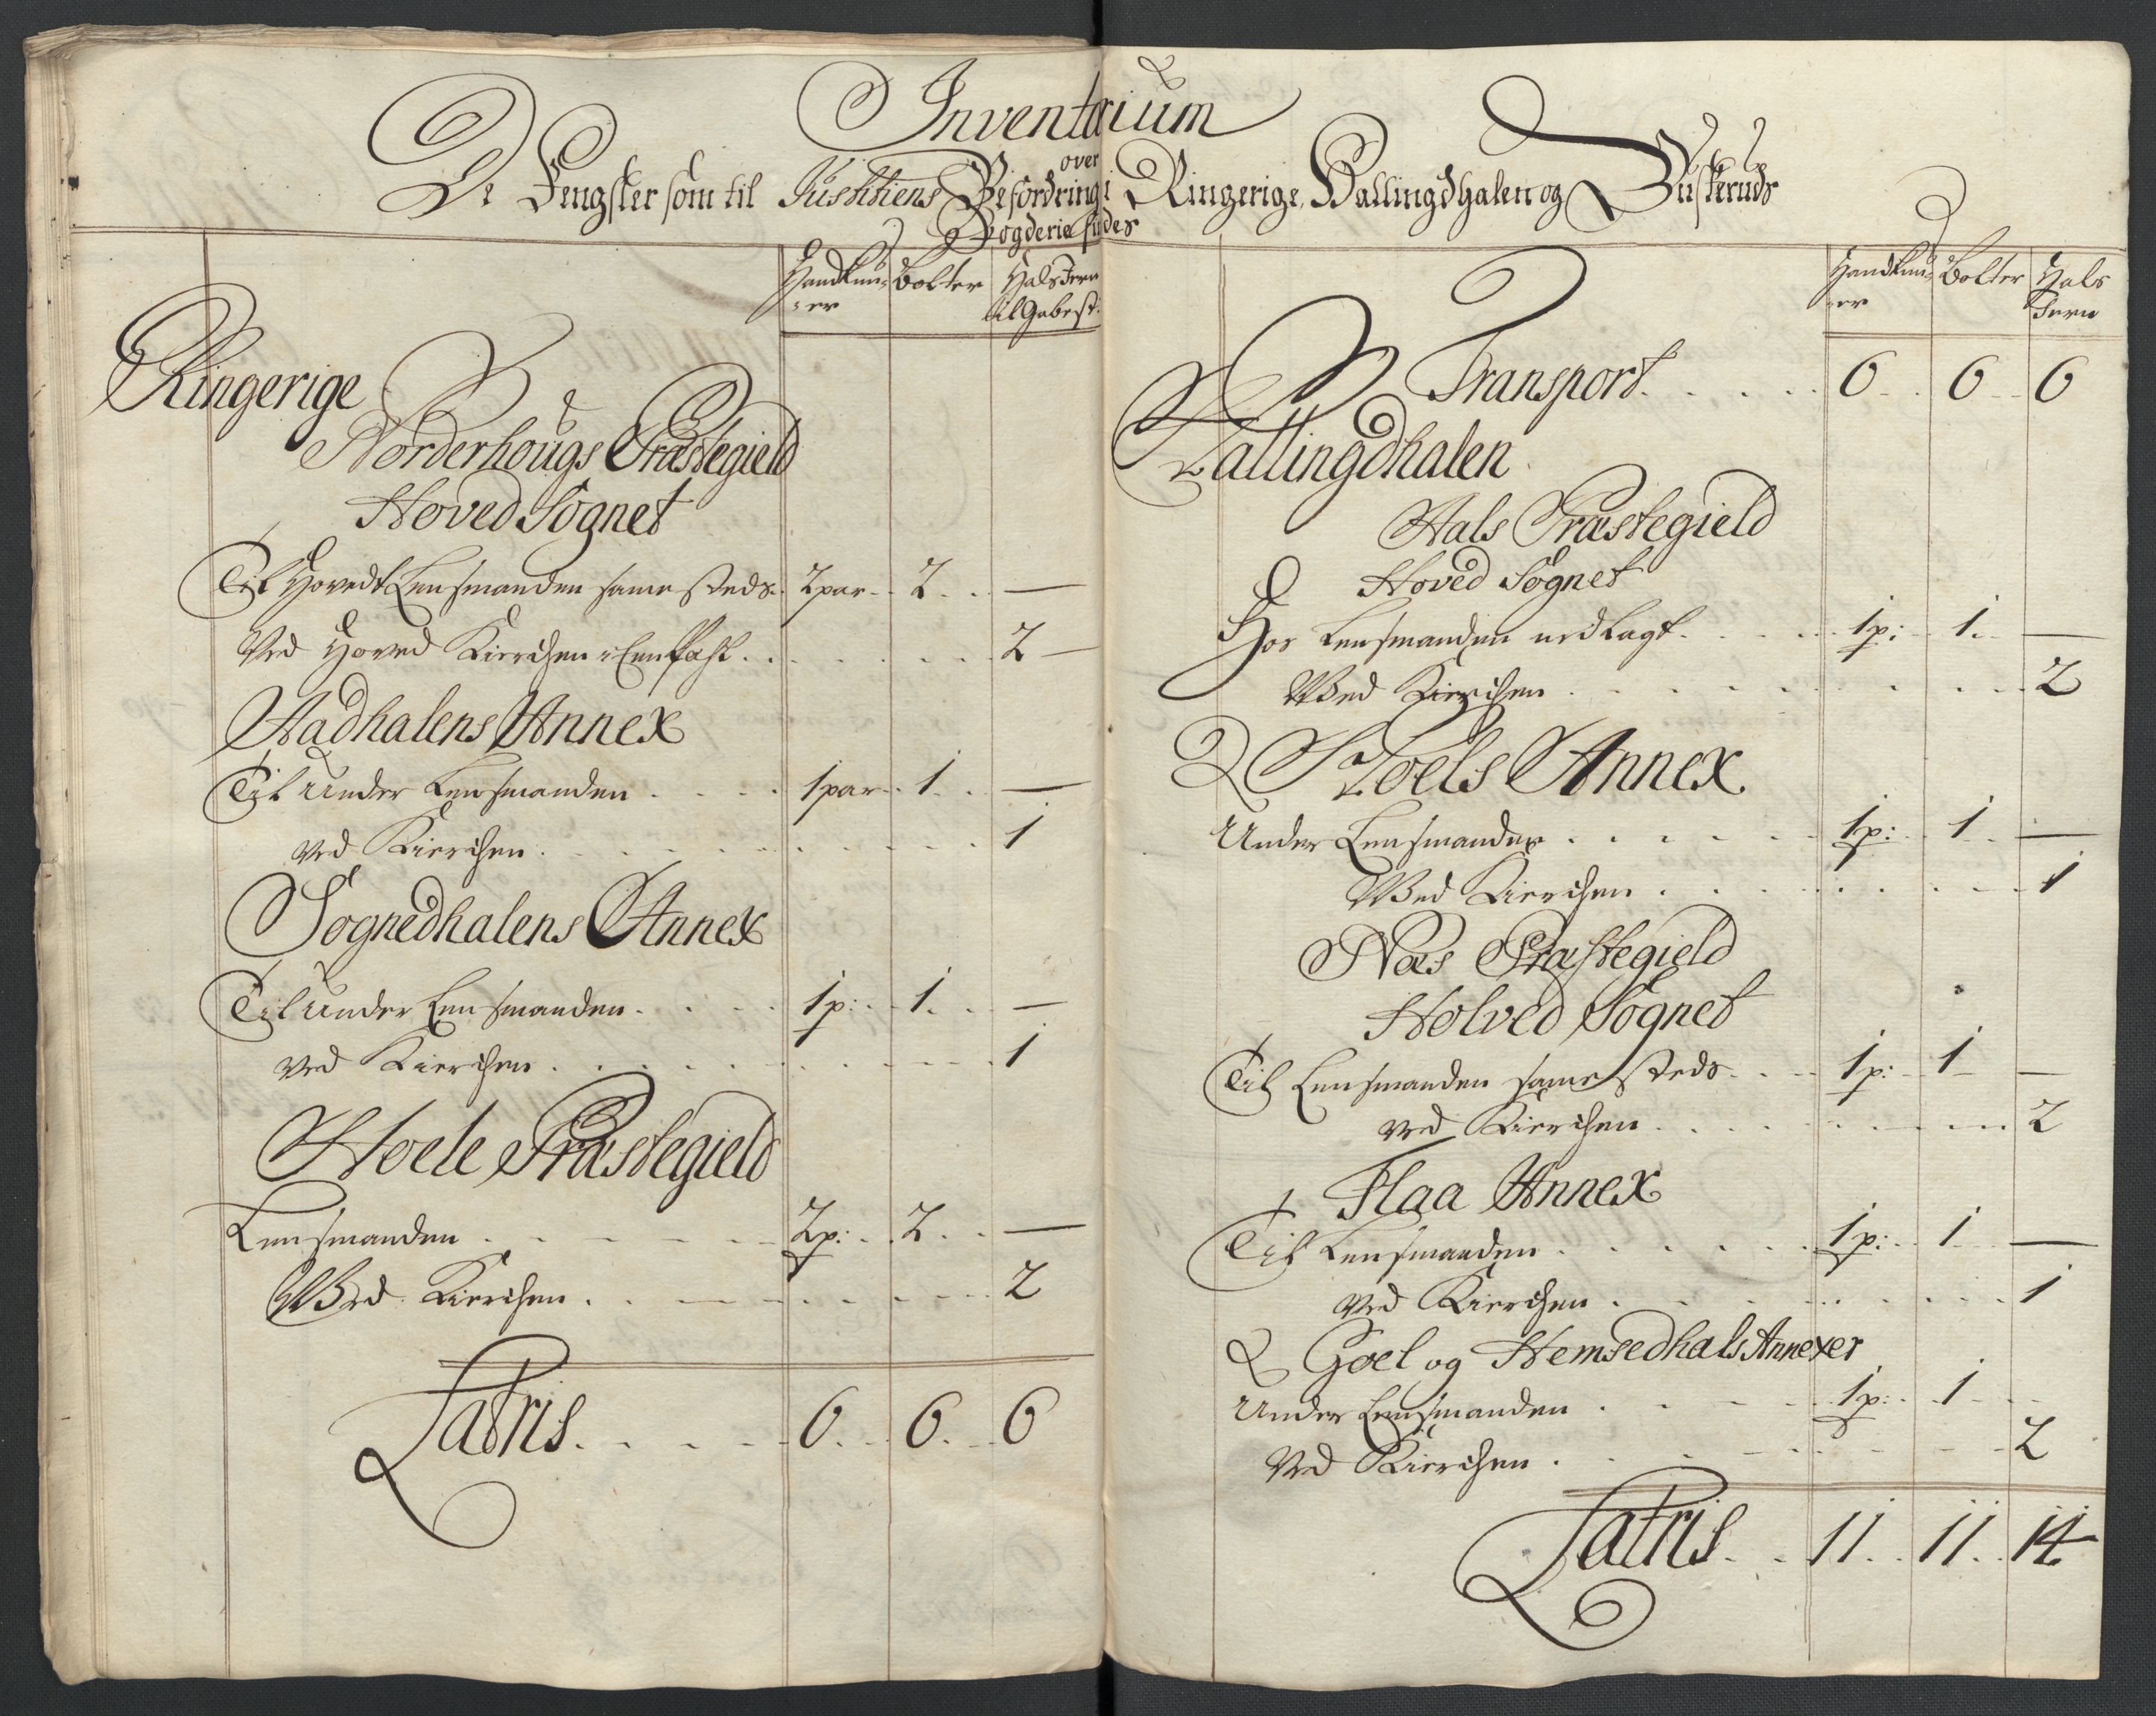 Inventarium
over
De Fengsler som til Justitiens Befordring i Ringerige, Hallingdhalen og Buskeruds
Fogderie findes
Handknu- Bolter Hals Jern
-er til Gabest:
Ringerige
Norderhougs Præstegield
Hoved Sognet
Til Hovedt Lensmanden samesteds. 2 par. 2. —
Ved Hoved Kierchen 2 —
Aadhalens Annex
Til Under Lensmanden . . . 1 par. 1. —
Ved Kierchen . . . 1
Sognedhalens Annex
Til Under Lensmanden . . . 1 p: 1. —
Ved Kierchen . . . 1
Hoele Præstegield
Lensmanden . . . 2 p: 2. —
Wed Kierchen . . . 2
Latris . . . 6. 6. 6
Handknu- Bolter Hals
-er Jern
Transport . . . 6. 6. 6
Hallingdhalen
Aals Præstegield
Hoved Sognet
Hos Lensmanden nedLagt . . . 1 p: 1. —
Wed Kierchen . . . 2
Hoels Annex
Under Lensmanden . . . 1 p: 1 —
Wed Kierchen . . . 1
Næs Præstegield
Holved Sognet
Til Lensmanden samesteds . . . 1 p: 1 —
Ved Kierchen . . . 2
Flaa Annex
Til Lensmanden . . . 1 p: 1 —
Ved Kierchen . . . 1
Goel og Hemsedhals Annexer
Under Lensmanden . . . 1 p: 1
Ved Kierchen . . . 2
Latris . . . 11. 11. 14